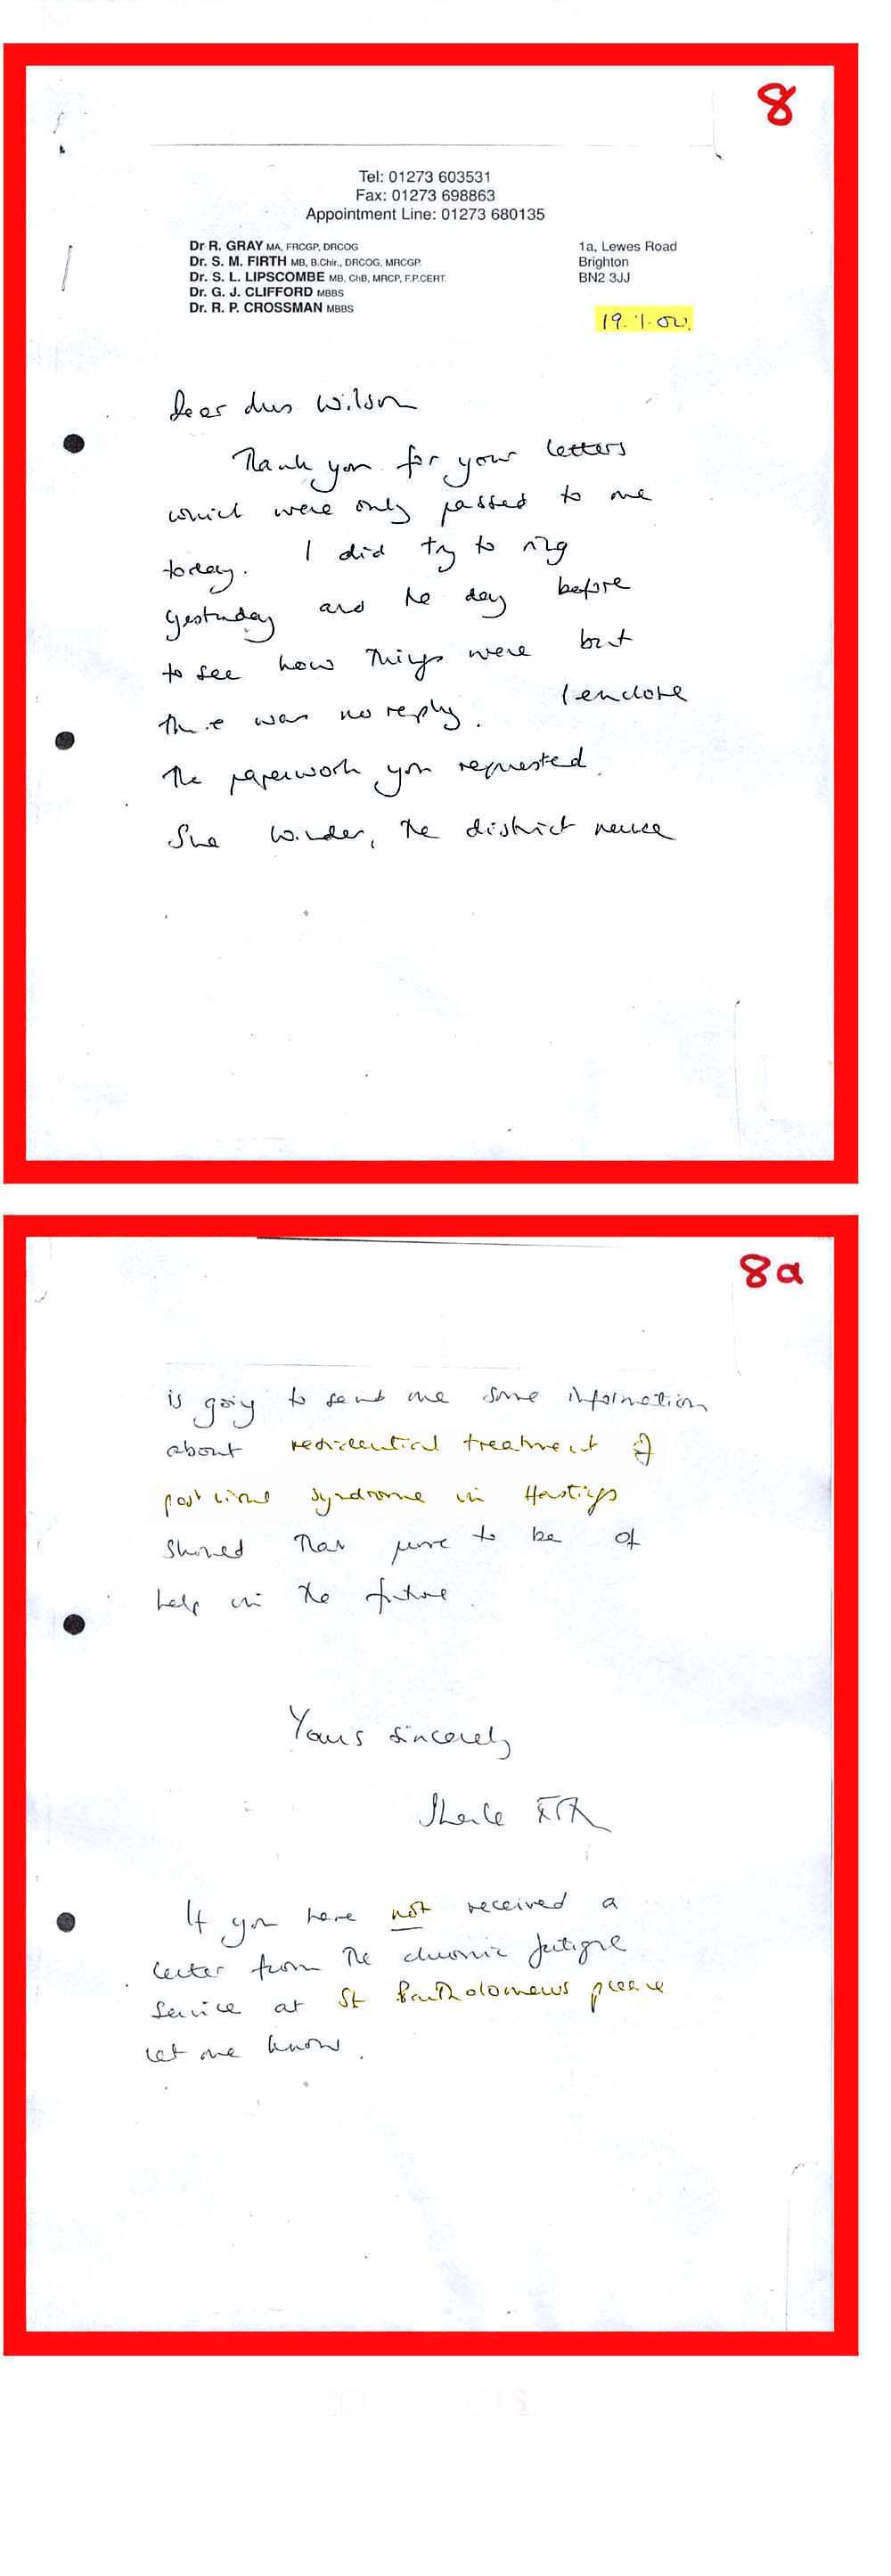 8
Tel: 01273 603531
Fax: 01273 698863
Appointment Line: 01273 680135
Dr R. GRAY MA, FRCGP, DRCOG
Dr. S. M. FIRTH MB, B.Chir., DRCOG, MRCGP
Dr. S. L. LIPSCOMBE MB, ChB, MRCP, F.P.CERT.
Dr. G. J. CLIFFORD MBBS
Dr. R. P. CROSSMAN MBBS
1a, Lewes Road
Brighton
BN2 3JJ
19.1.00.
Dear Mrs Wilson
Thank you for your letters
which were only passed to me
today. I did try to ring
yesterday and the day before
to see how things were but
there was no reply. I enclose
the paperwork you requested.
Sue Winder, the district nurse
8a
is going to send me some information
about residential treatment of
post viral syndrome in Hastings
should that prove to be of
help in the future.
Yours sincerely
Sheila
If you have not received a
letter from the chronic fatigue
service at St Bartholomews please
let me know.